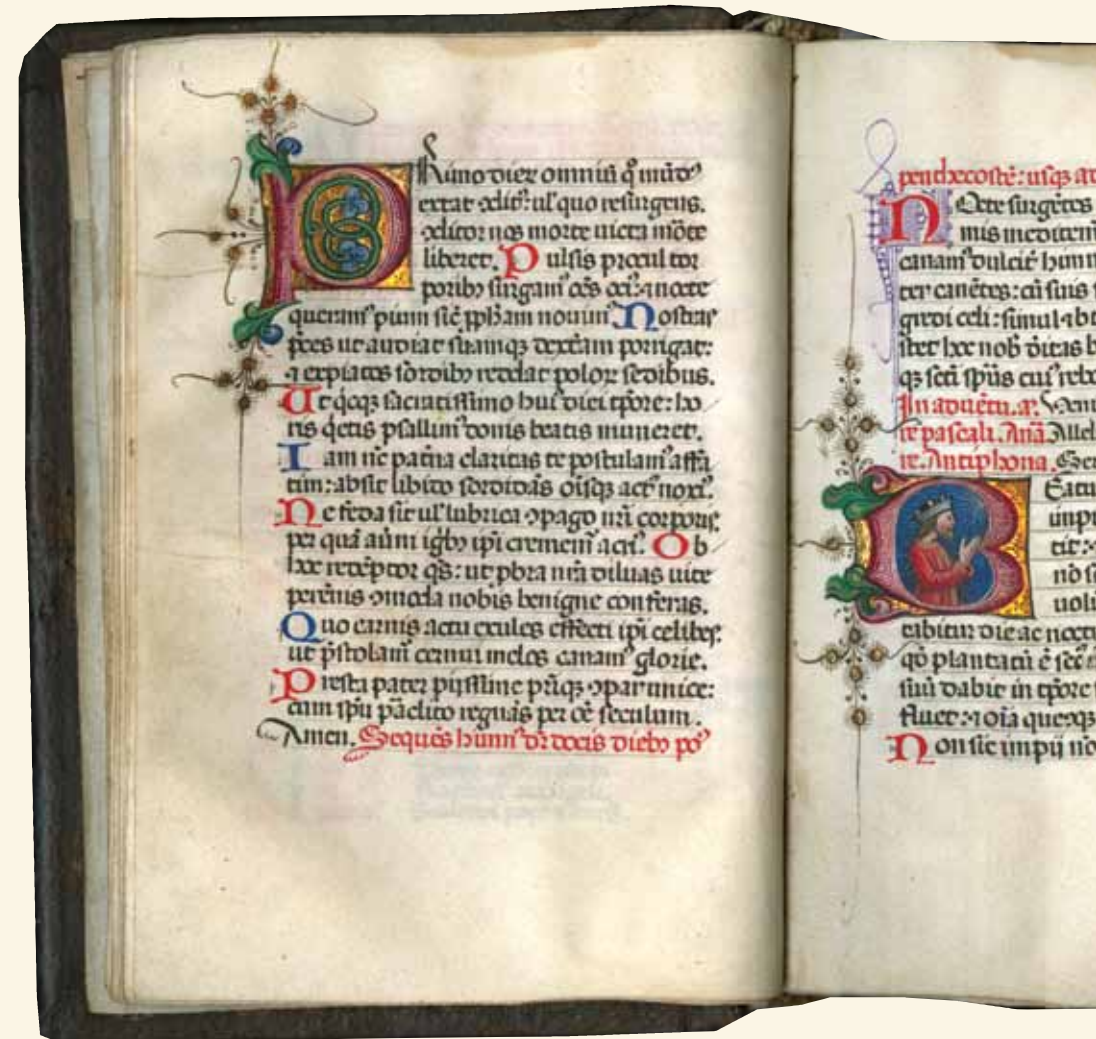 Rimo dieꝝ omniũ q̊ mũdꝰ
extat ꝯditꝰ: ul' quo resurgens.
ꝯditor nos morte uicta mõte
liberet. Pulsis procul tor
poribꝫ surgamꝰ oẽs ociꝰ: ⁊ nocte
queramꝰ pium sic̃ ꝓpħam nouimꝰ. Nostras
p̃ces ut audiat suamqꝫ dextẽam porrigat:
⁊ expiatos sordibꝫ reddat poloꝝ sedibus.
Ut q̇qꝫ sacratissimo huiꝰ diei tp̃ore: ho
ris q̇etis psallimꝰ donis beatis muneret.
Iam nc̃ pat̃na claritas te postulamꝰ affa
tim: absit libido sordidãs oĩsqꝫ actꝰ noxiꝰ.
Ne feda sit ul' lubrica ꝯpago nr̃i corporis
per quã au̾ni ig̃bꝫ ip̃i crememr̃ acriꝰ. Ob
hoc redẽptor q̃s: ut ꝓbra nr̃a diluas uite
perẽnis ꝯmoda nobis benigne conferas.
Quo carnis actu exules effecti ip̃i celibes:
ut p̃stolam̃ cernui melos canamꝰ glorie.
Presta pater pijssime pr̃iqꝫ ꝯpar unice:
cum sp̃u pãclito regnãs per oẽ seculum.
Amen. Sequẽs hymnꝰ dr̃ docis diebꝫ poꝰ
pendxcostẽ: usqꝫ ad
Nocte surgẽtes
mis meditem̃
canamꝰ dulcit̾ hymn
ter canẽtes: cũ suis
gredi celi: simul ⁊ b
stet hoc nob̃ d̾itas b
qꝫ scti sp̃us cuiꝰ reb
In aduẽtu. añ. Veni
re pascali. Añã. Allel
re. Antiphona. Ser
Beatu
impi
tit: ⁊
nõ s
uolu
tabitur die ac noctu
qđ plantatũ ẽ sec̃
suũ dabit in tp̃ore
fluet: ⁊ oĩa quecqꝫ
Non sic impij nõ